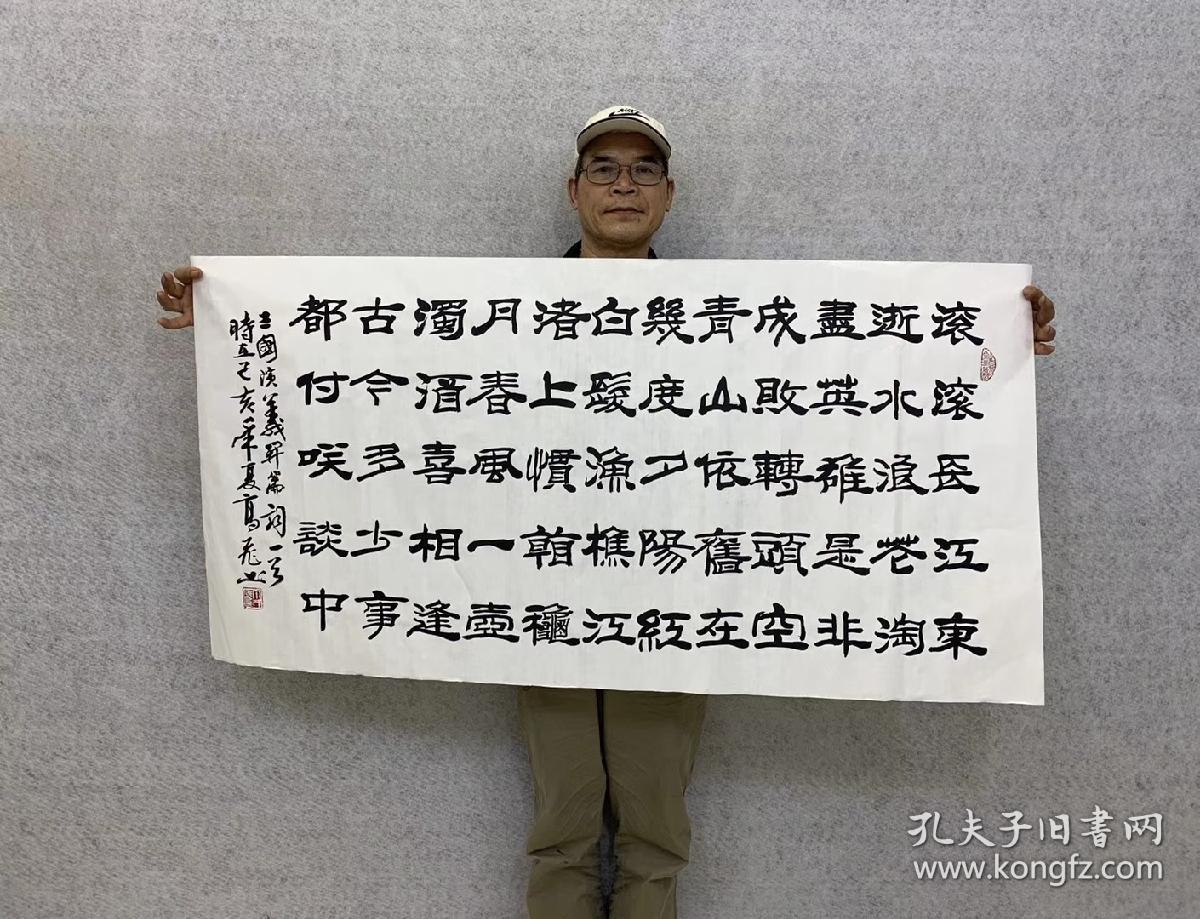 滚滚長江東
逝水浪花淘
盡英雄是非
成敗轉頭空
青山依舊在
幾度夕陽紅
白髮漁樵江
渚上慣看龝
月春風一壺
濁酒喜相逢
古今多少事
都付咲談中
三國演義開篇詞一首
時在己亥年夏高飛书
孔夫子旧書网
www.kongfz.com